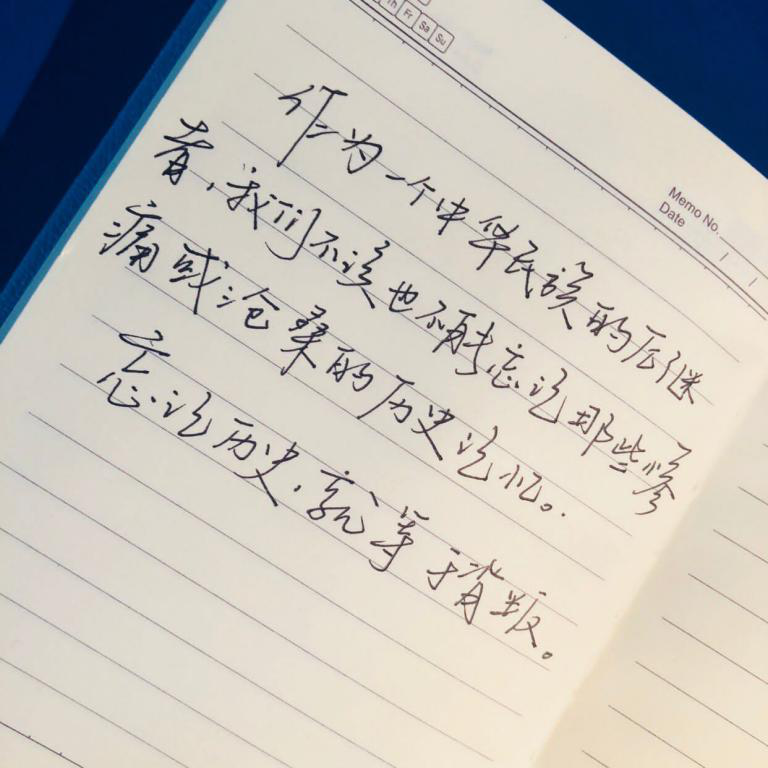 Th Fr Sa Su
Memo No.
Date / /
作为一个中华民族的后继
者，我们不该也不能忘记那些惨
痛或沧桑的历史记忆。
忘记历史，就等于背叛。